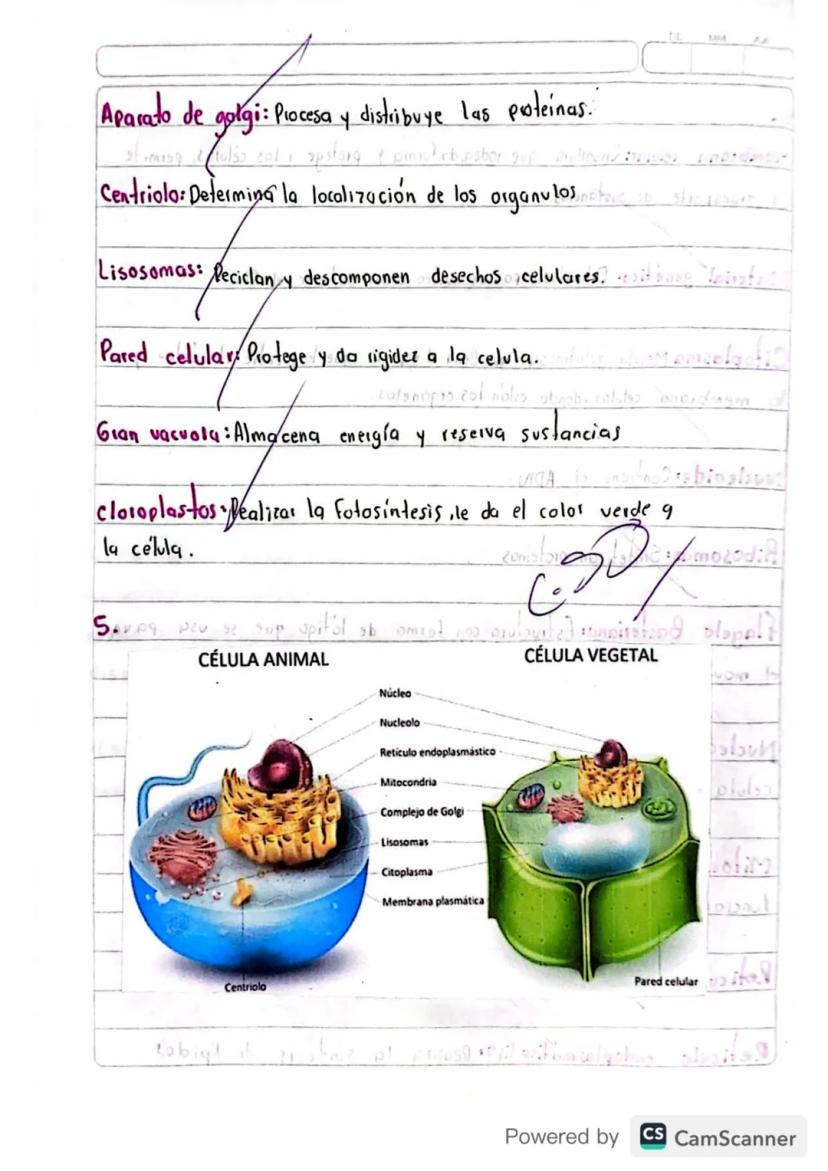 DD MM AA
Aparato de golgi: Procesa y distribuye las proteínas.
Centriolo: Determina la localización de los organulos
Lisosomas: Reciclan y descomponen desechos celulares.
Pared celular: Protege y da rigidez a la celula.
Gran vacuola: Almacena energía y reserva sustancias
cloroplastos: Realizar la Fotosíntesis, le da el color verde a
la célula.
5.
CÉLULA ANIMAL
CÉLULA VEGETAL
Núcleo
Nucleolo
Retículo endoplasmástico
Mitocondria
Complejo de Golgi
Lisosomas
Citoplasma
Membrana plasmática
Centriolo
Pared celular
Powered by CS CamScanner